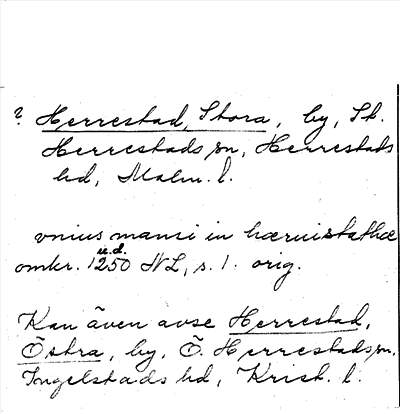 ? Herrestad, Stora, by, St.
Herrestads sn, Herrestads
hd, Malm. l.
vnius mansi in hæruistathæ
u.d.
omkr. 1250 NL, s. 1. orig.
Kan även avse Herrestad,
Östra, by, Ö. Herrestads sn,
Ingelstads hd, Krist. l.